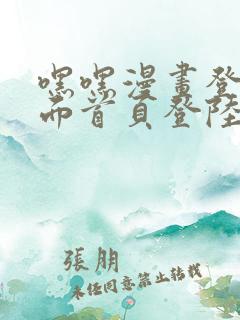 嘿嘿漫畫登
而首頁登陸
張朋
未经同意禁止转载